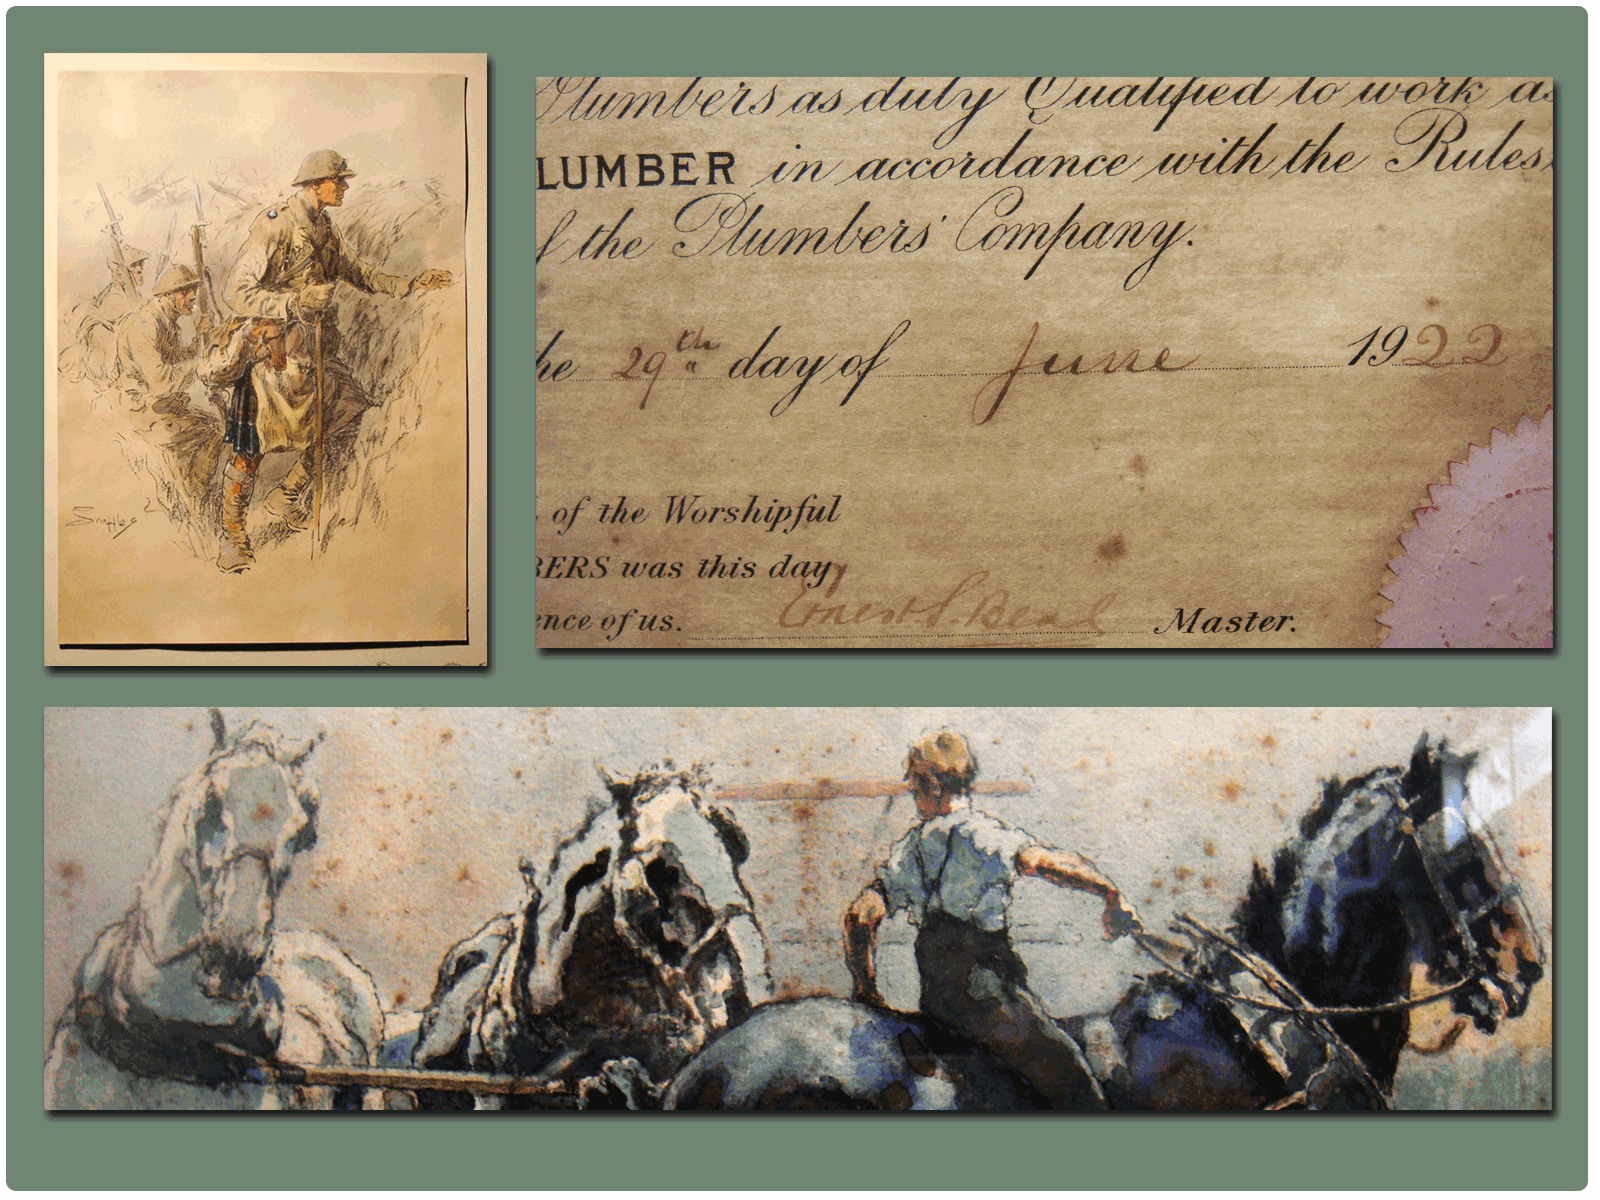 Snaffles
Plumbers as duly Qualified to work as
LUMBER in accordance with the Rules
f the Plumbers' Company.
he 29th day of June 1922
of the Worshipful
BERS was this day
ence of us. Ernest S. Beal Master.